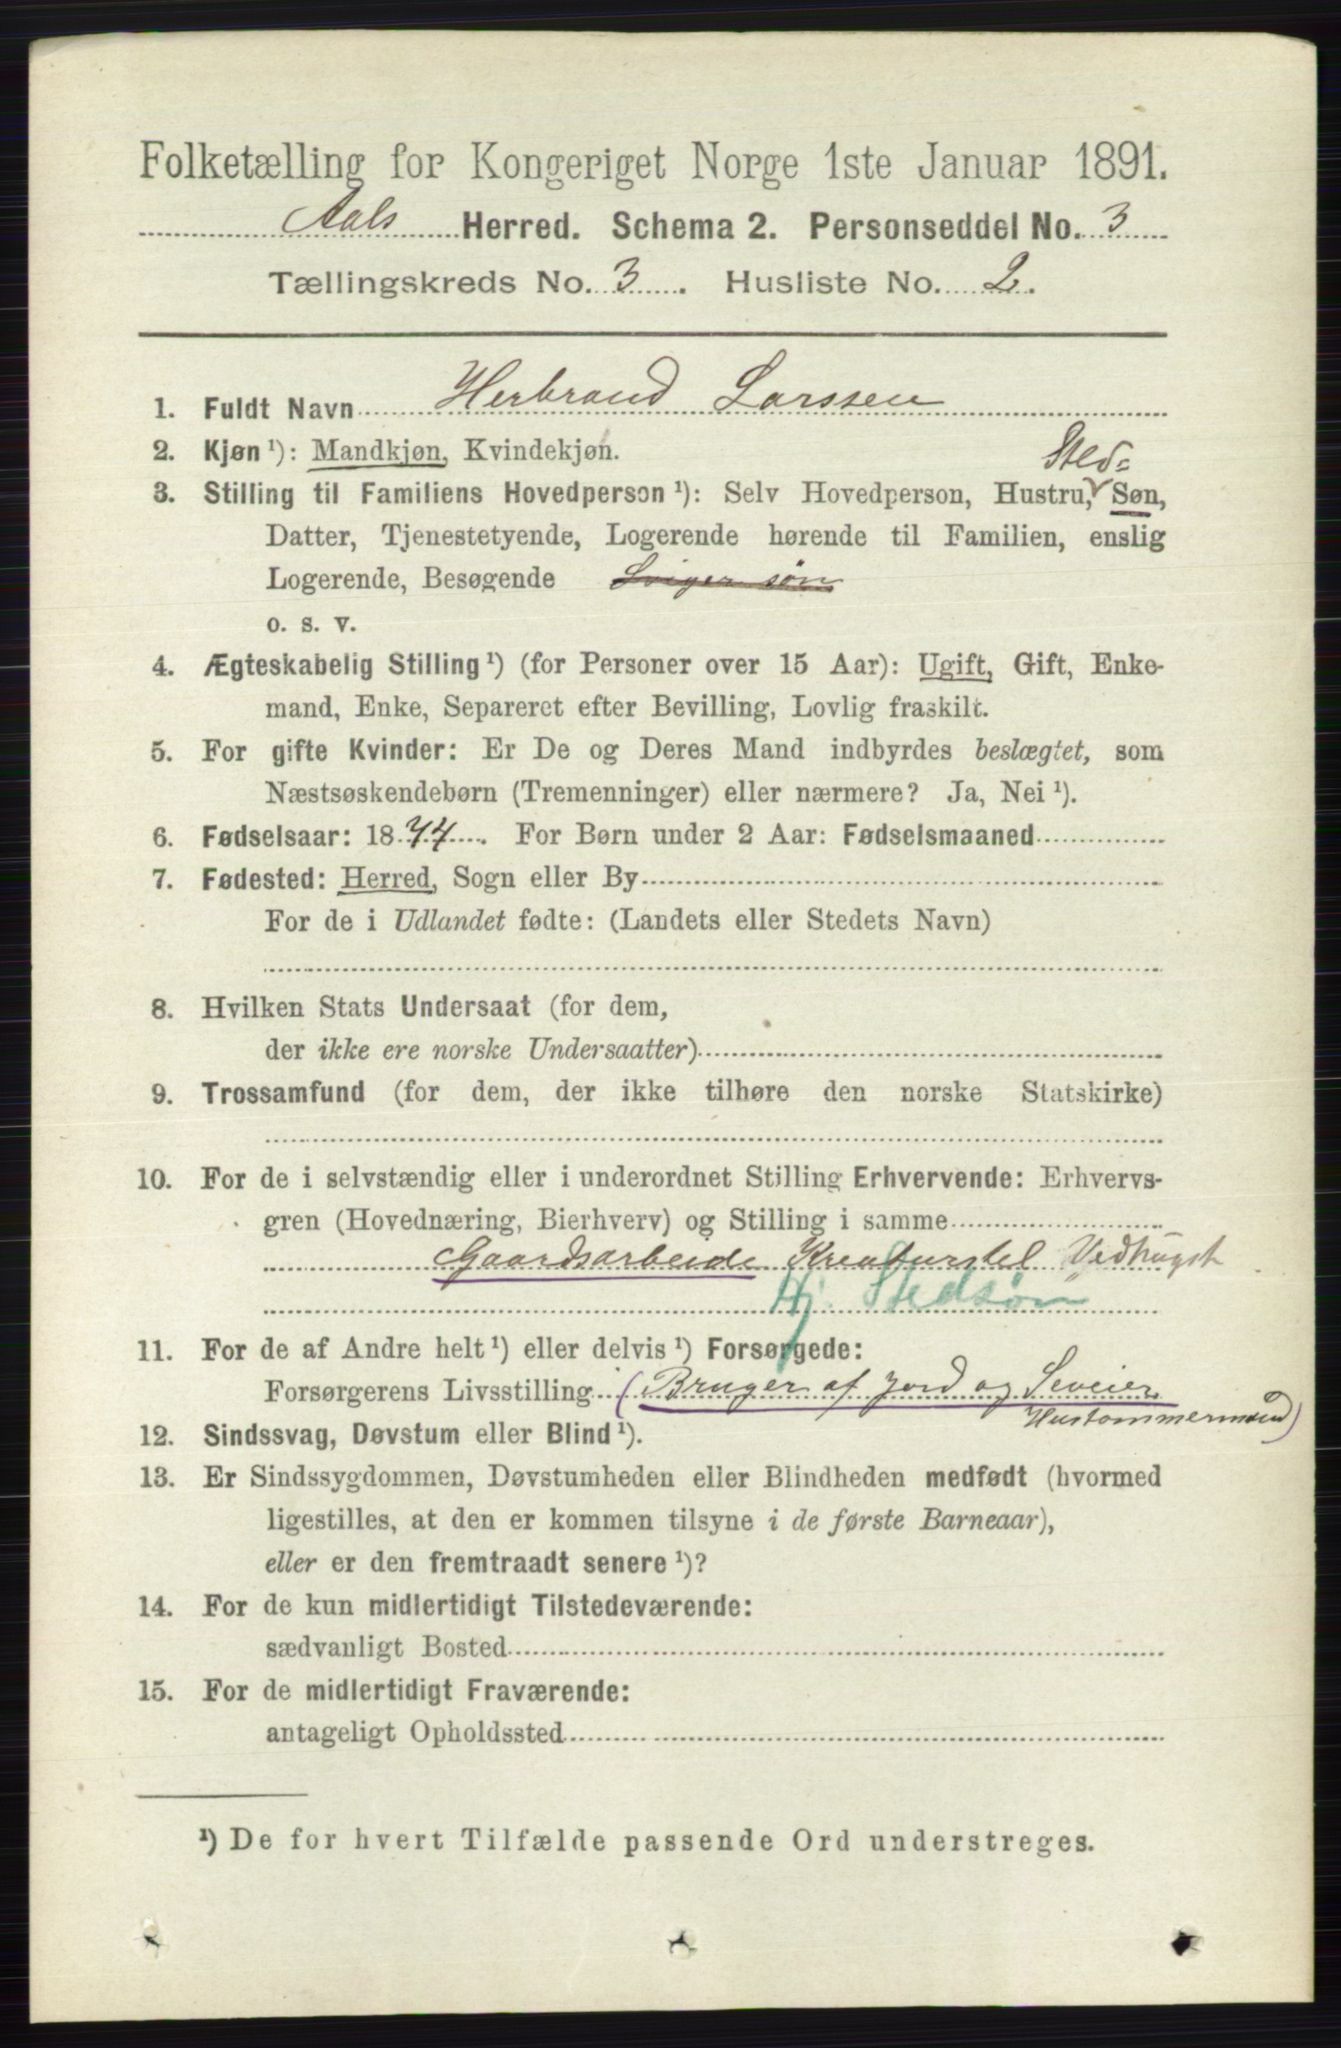 Folketælling for Kongeriget Norge 1ste Januar 1891.
Aals Herred. Schema 2. Personseddel No. 3
Tællingskreds No. 3. Husliste No. 2.
1. Fuldt Navn Herbrand Larssen
2. Kjøn¹): Mandkjøn, Kvindekjøn.
Sted-
3. Stilling til Familiens Hovedperson¹): Selv Hovedperson, Hustru, Søn,
Datter, Tjenestetyende, Logerende hørende til Familien, enslig
Logerende, Besøgende Svigersøn
o. s. v.
4. Ægteskabelig Stilling¹) (for Personer over 15 Aar): Ugift, Gift, Enke-
mand, Enke, Separeret efter Bevilling, Lovlig fraskilt.
5. For gifte Kvinder: Er De og Deres Mand indbyrdes beslægtet, som
Næstsøskendebørn (Tremenninger) eller nærmere? Ja, Nei¹).
6. Fødselsaar: 1874. For Børn under 2 Aar: Fødselsmaaned
7. Fødested: Herred, Sogn eller By
For de i Udlandet fødte: (Landets eller Stedets Navn)
8. Hvilken Stats Undersaat (for dem,
der ikke ere norske Undersaatter)
9. Trossamfund (for dem, der ikke tilhøre den norske Statskirke)
10. For de i selvstændig eller i underordnet Stilling Erhvervende: Erhvervs-
gren (Hovednæring, Bierhverv) og Stilling i samme
Gaardsarbeide Kreaturstel Vedhugst
Hj. Stedsøn
11. For de af Andre helt¹) eller delvis¹) Forsørgede:
Forsørgerens Livsstilling (Bruger af jord og Seveier
Hustømmermand)
12. Sindssvag, Døvstum eller Blind¹).
13. Er Sindssygdommen, Døvstumheden eller Blindheden medfødt (hvormed
ligestilles, at den er kommen tilsyne i de første Barneaar),
eller er den fremtraadt senere¹)?
14. For de kun midlertidigt Tilstedeværende:
sædvanligt Bosted
15. For de midlertidigt Fraværende:
antageligt Opholdssted
¹) De for hvert Tilfælde passende Ord understreges.